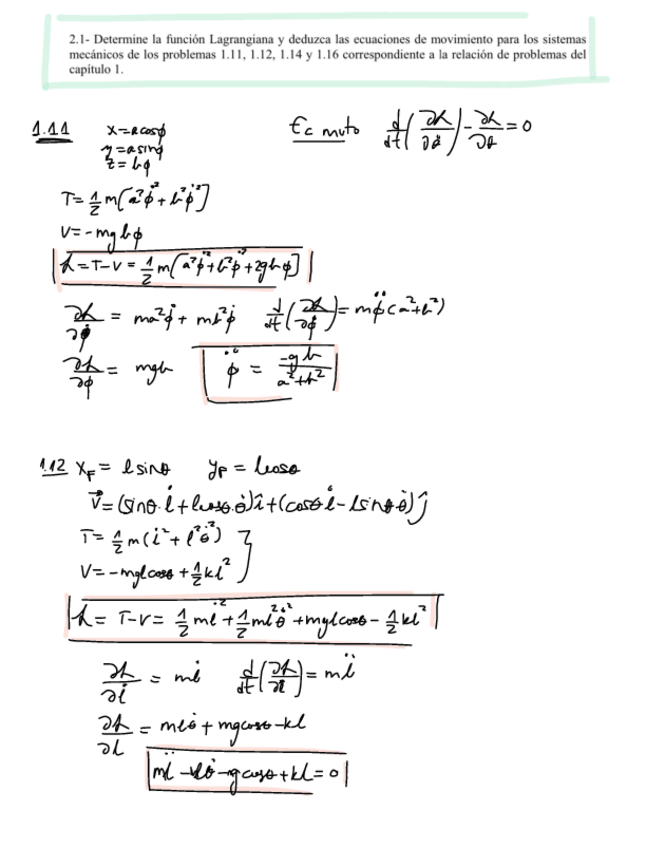 2.1- Determine la función Lagrangiana y deduzca las ecuaciones de movimiento para los sistemas
mecánicos de los problemas 1.11, 1.12, 1.14 y 1.16 correspondiente a la relación de problemas del
capítulo 1.
1.11 x=acosϕ Ec muto d/dt(∂L/∂q̇)-∂L/∂q=0
y=asinϕ
z=bϕ
T=1/2 m[a²ϕ̇²+b²ϕ̇²]
V=-mgbϕ
L=T-V=1/2 m[a²ϕ̇²+b²ϕ̇²+2gbϕ]
∂L/∂ϕ̇ = ma²ϕ̇+mb²ϕ̇ d/dt(∂L/∂ϕ̇)=mϕ̈(a²+b²)
∂L/∂ϕ = mgb ϕ̈ = -gb/a²+b²
1.12 x_F= lsinθ y_F = lcosθ
V⃗=(sinθ·l̇+lcosθ·θ̇)î+(cosθl̇-lsinθ·θ̇)ĵ
T=1/2 m(l̇²+l²θ̇²)
V=-mglcosθ+1/2kl²
L= T-V= 1/2 ml̇²+1/2ml²θ̇²+mglcosθ-1/2kl²
∂L/∂l̇ = ml̇ d/dt(∂L/∂l̇)=ml̈
∂L/∂l = mlθ̇+mgcosθ-kl
ml̈ -lθ̇-gcosθ+kl=0